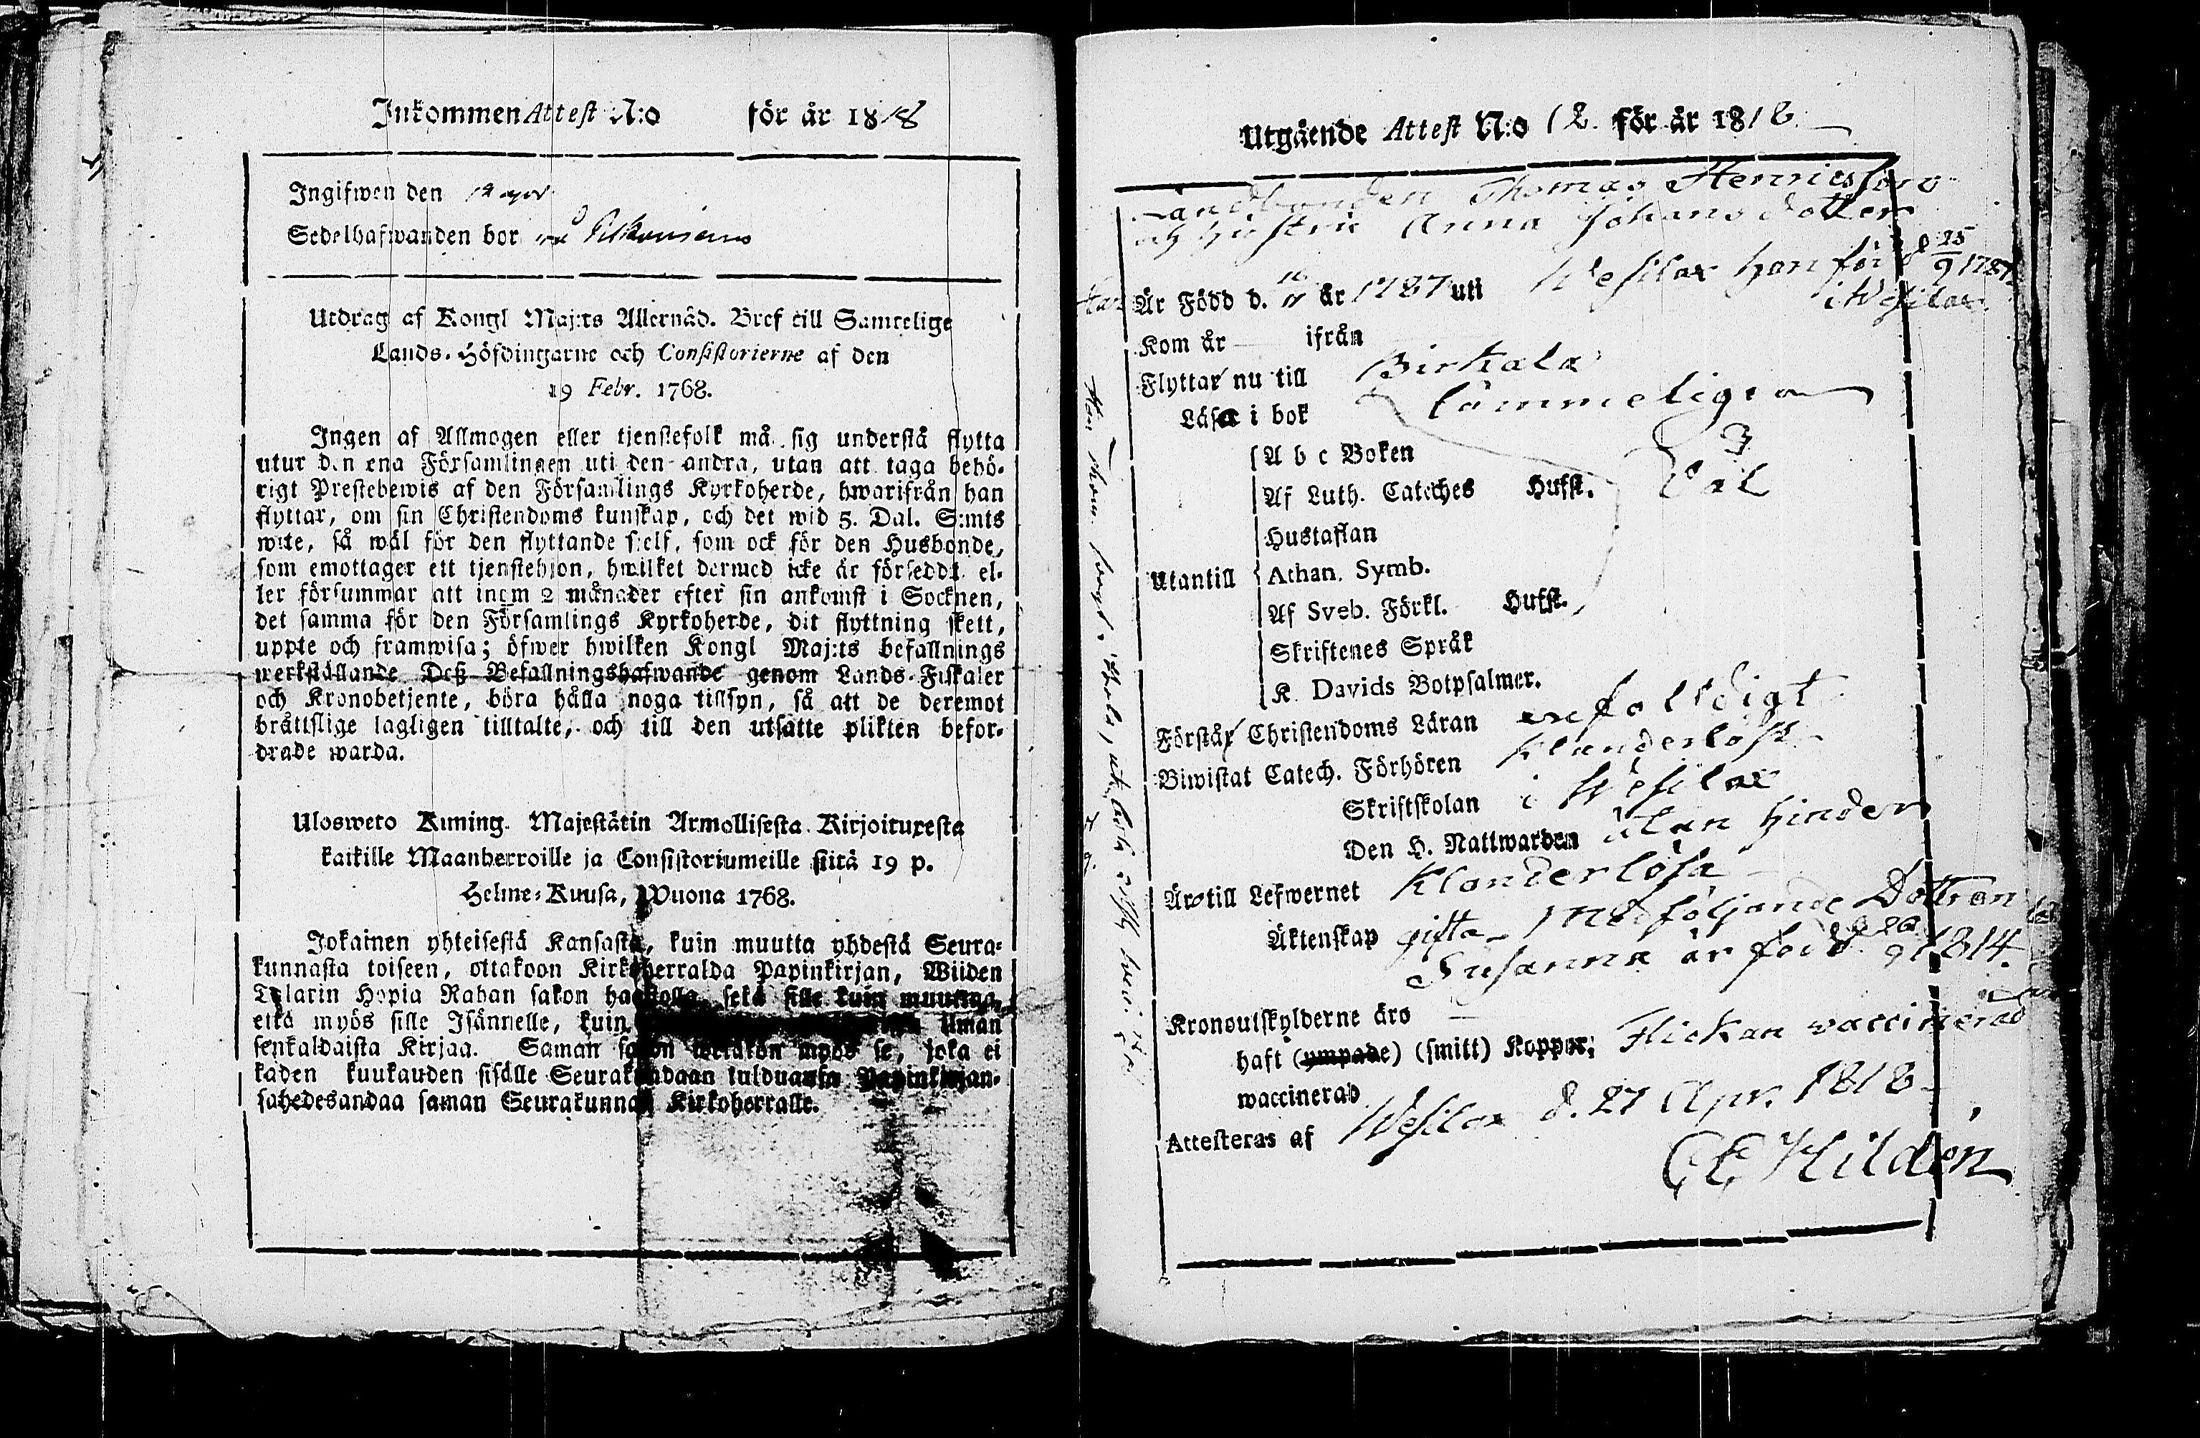 Inkommen Attest N:o för år 1818
Ingifwen den
Sedelhafwanden bor
Utdrag af Kongl Maj:ts Allernåd. Bref till Samtelige
Lands-Höfdingarne och Consistorierne af den
19 Febr. 1768.
Ingen af Allmogen eller tjenstefolk må sig understå flytta
utur den ena Församlingen uti den andra, utan att taga behö-
rigt Prestebewis af den Församlings Kyrkoherde, hwarifrån han
flyttar, om sin Christendoms kunskap, och det wid 5. Dal. S:mts
wite, så wäl för den flyttande sjelf, som ock för den Husbonde,
som emottager ett tjenstehjon, hwilket dermed icke är försedd, el-
ler försummar att inom 2 månader efter sin ankomst i Socknen,
det samma för den Församlings Kyrkoherde, dit flyttning skett,
uppte och framwisa; öfwer hwilken Kongl Maj:ts befallnings
werkställande Deß Befallningshafwande genom Lands-Fiskaler
och Kronobetjente, böra hålla noga tillsyn, så att de deremot
bråttslige lagligen tilltalte, och till den utsatte plikten befor-
drade warda.
Ulosweto Kuning. Majestätin Armollisesta Kirjoituxesta
kaikille Maanherroille ja Consistoriumeille siitä 19 p.
Helme-Kuusa, Wuona 1768.
Jokainen yhteisestä Kansasta, kuin muutta yhdestä Seura-
kunnasta toiseen, ottakoon Kirkoherralda Papinkirjan, Wiiden
Talarin Hopia Rahan sakon haastolla, sekä sille kuin muutta,
että myös sille Isännelle, kuin ilman
senkaldaista Kirjaa. Saman sakon wetäkön myös se, joka ei
kahden kuukauden sisälle Seurakundaan tulduansa Papinkirjan-
sa edesandaa saman Seurakunnan Kirkoherralle.
Utgående Attest N:o 12. för år 1818.
Landbonden Thomas Henricsson
och hustru Anna Johans dotter
Är Född d. år 1787 uti Wesilax hon för d 25/9 1787
i Wesilax.
Kom år ifrån
Flyttar nu till Birkala
Läsa i bok
A b c Boken 3
Af Luth. Cateches Hufst. Väl
Hustaflan
Utantill Athan. Symb.
Af Sveb. Förkl. Hufst.
Skriftenes Språk
K. Davids Botpsalmer.
Förstår Christendoms Läran enfalldigt
Biwistat Catech. Förhören Klanderlöst
Skriftskolan i Wesilax
Den H. Nattwarden utan hinder
Äro till Lefwernet Klanderlösa
Äktenskap gifta medföljande Dottren
Susanna är född 1814.
Kronoutskylderne äro
haft (ympade) (smitt) Koppor; Flickan vaccinerad
waccinerad
Attesteras af Wesilax d. 27 Apr. 1818
C E Hildén